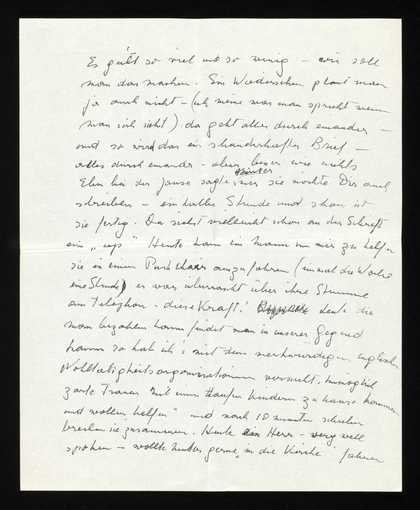 Es gibt so viel und so wenig – wie soll
man das machen. Ein Wiedersehen plant man
ja auch nicht – (ich meine was man spricht wenn
man sich sieht) da geht alles durch einander –
und so wird das ein skandalhafter Brief –
alles durcheinander – aber besser wie nichts
bei der Jause sagte, sie möchte Dir auch
schreiben – ein halbe Stunde und schon ist
sie fertig. Du siehst vielleicht schon an der Schrift
ein „ups" Heute kam ein Mann um mir zu helfen
sie in einem Push chair auszufahren (einmal die Woche
eine Stunde) er war überrascht über ihre Stimme
am Telephon – diese Kraft! Leute die
man bezahlen kann findet man in unserer Gegend
kaum so hab ich's mit den merkwürdigen englischen
Wohltätigkeitsorganisationen versucht.
zarte Frauen mit einem Haufen Kindern zu Hause kommen
und wollen helfen" und nach 10 minuten
brechen sie zusammen. Heute ein Herr – very well
spoken – wollte lieber gerne in die Kirche fahren